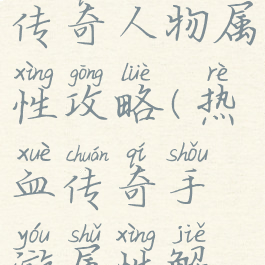 传奇人物属
xìng gōng lüè rè
性攻略(热
xuè chuán qí shǒu
血传奇手
yóu shǔ xìng jiě
游属性解